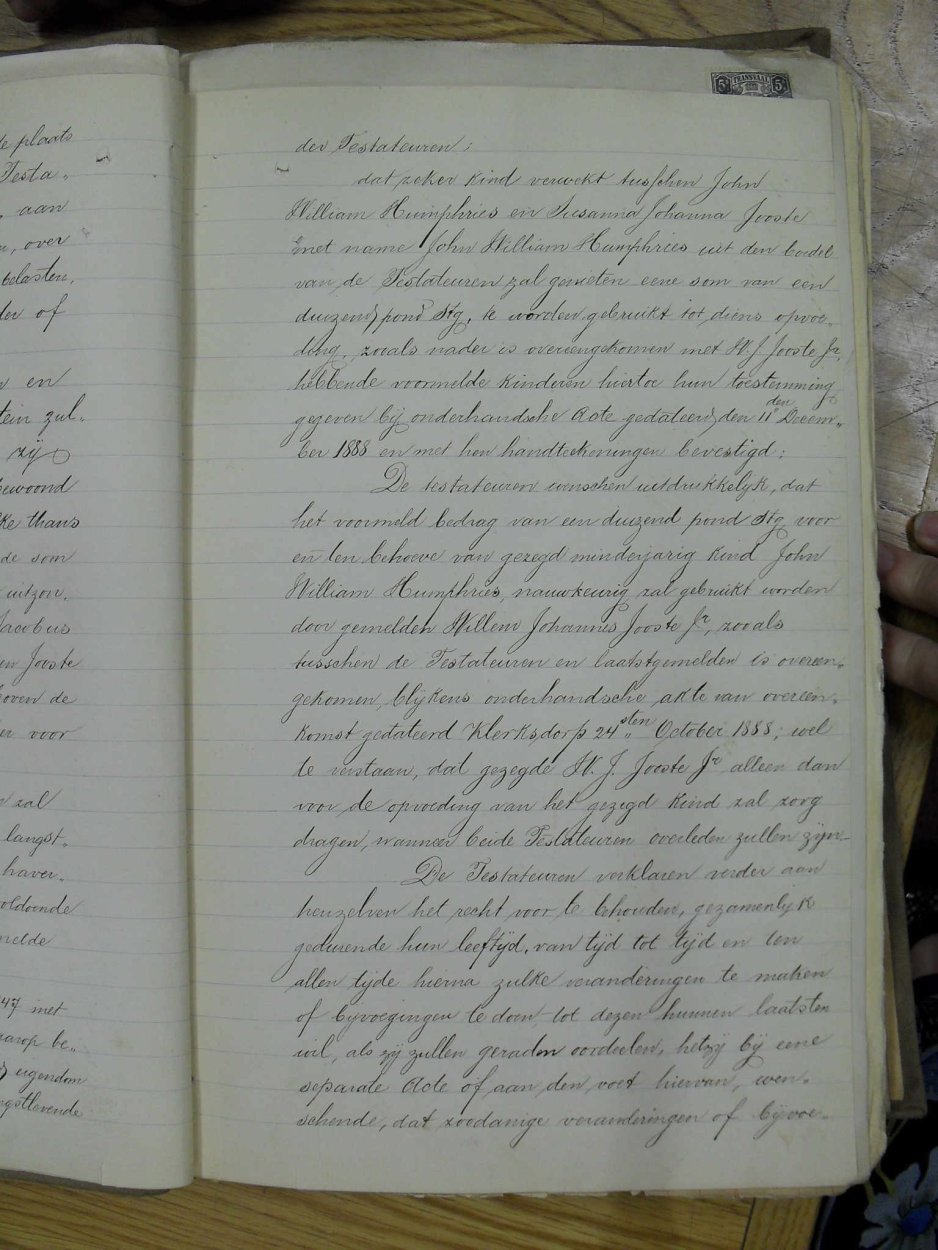 de plaats
Testa„
, aan
n, over
belasten,
der of
n en
tein zul„
zij
bewoond
ke thans
de som
uitzon„
Jacobus
en Jooste
hoven de
er voor
n zal
langst„
haver„
voldoende
melde
1847 met
waarop be„
eigendom
ngstlevende
5/ TRANSVAAL 5/
der Testateuren;
dat zeker kind verwekt tusschen John
William Humphries en Susanna Johanna Jooste
met name John William Humphries uit den boedel
van de Testateuren zal genieten eene som van een
duizend pond Stg, te worden gebruikt tot diens opvoe„
ding, zooals nader is overeengekomen met W. J. Jooste Jr,
hebbende voormelde kinderen hiertoe hun toestemming
gegeven bij onderhandsche Acte gedateerd den 11den Decem„
ber 1888 en met hen handteekeningen bevestigd;
De testateuren wenschen uitdrukkelyk, dat
het voormeld bedrag van een duizend pond Stg voor
en ten behoeve van gezegd minderjarig kind John
William Humphries, nauwkeurig zal gebruikt worden
door gemelden Willem Johannes Jooste Jr, zooals
tusschen de Testateuren en laatstgemelden is overeen„
gekomen, blijkens onderhandsche akte van overeen„
komst gedateerd Klerksdorp 24sten October 1888; wel
te verstaan, dat gezegde W. J. Jooste Jr alleen dan
voor de opvoeding van het gezegd kind zal zorg
dragen, wanneer beide Testateuren overleden zullen zijn—
De Testateuren verklaren verder aan
henzelven het recht voor te behouden, gezamenlijk
gedurende hun leeftijd, van tijd tot tijd en ten
allen tijde hierna zulke veranderingen te maken
of bijvoegingen te doen tot dezen hunnen laatsten
wil, als zij zullen geraden oordeelen, hetzij bij eene
separate Acte of aan den voet hiervan, wen„
schende, dat zoodanige veranderingen of bijvoe„